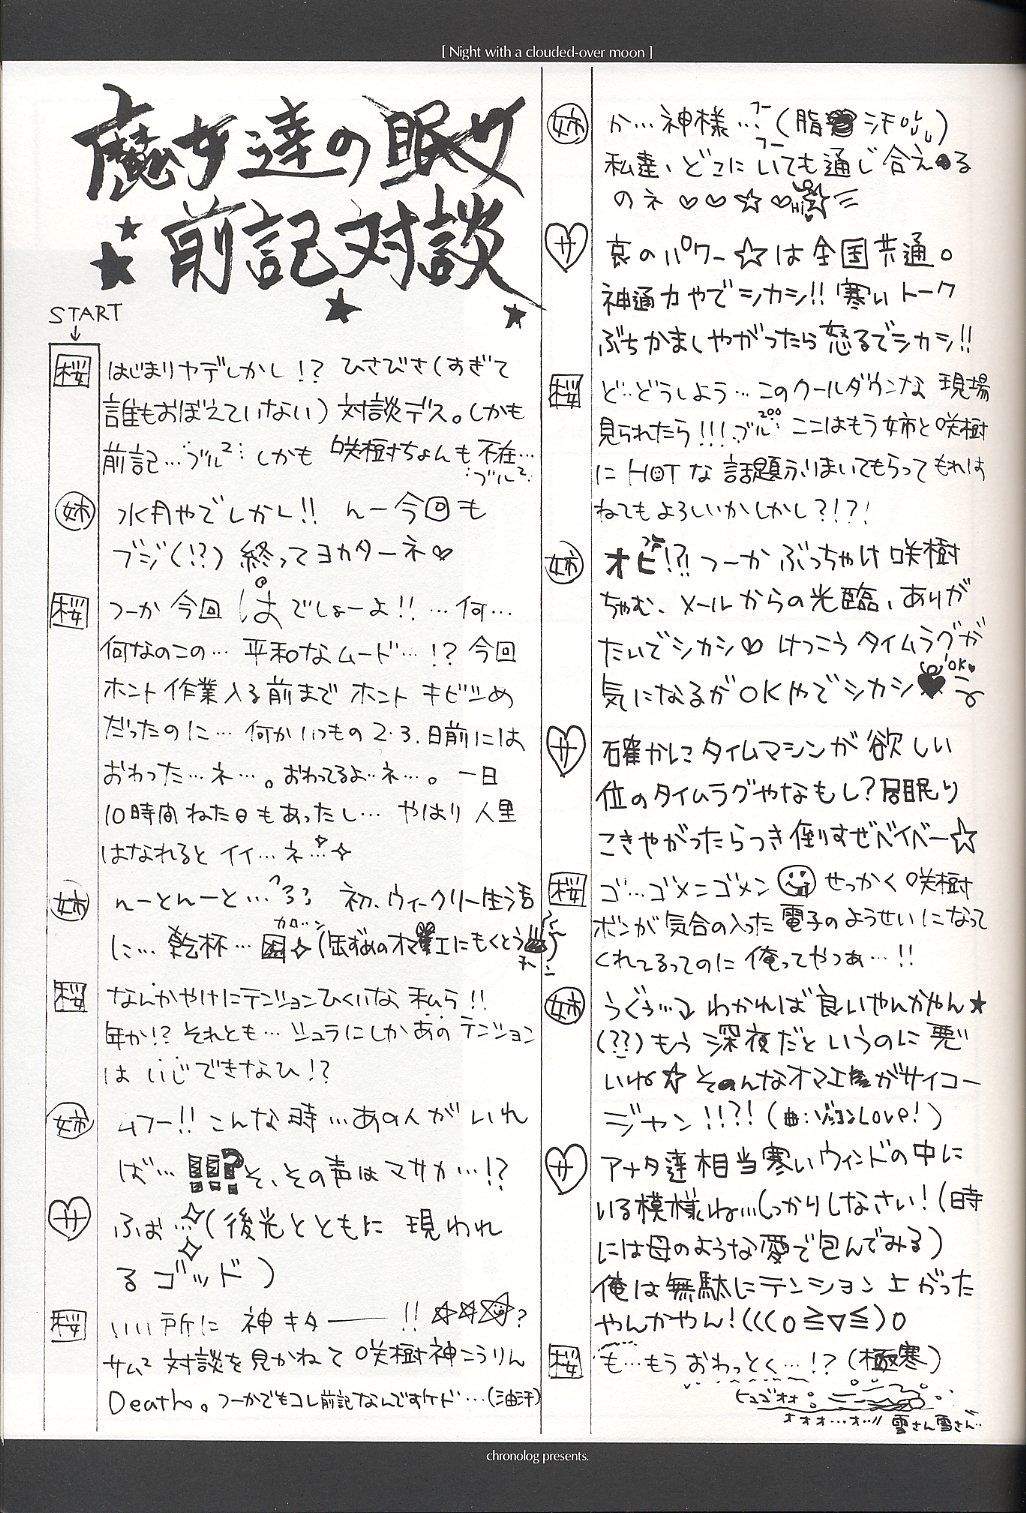 [ Night with a clouded-over moon ]
魔女達の眠り
前記対談
START
桜 はじまりヤデしかし!? ひさびさ(すぎて
誰もおぼえていない) 対談デス。しかも
前記…ブル² しかも 咲樹ちょんも不在…
ブル²
姉 水月やでしかし!! んー今回も
ブジ(!?) 終ってヨカターネ♡
桜 つーか 今回 は でしょーよ!! …何…
何なのこの… 平和なムード…!? 今回
ホント作業入る前まで ホント キビシめ
だったのに… 何かいつもの 2・3.日前には
おわった…ネ…。おわってるよ…ネ…。一日
10時間ねた日もあったし… やはり 人里
はなれると イイ…ネ…
姉 んーとんーと… 初、ウィークリー生活
に… 乾杯…
桜 なんかやけにテンションひくいな 私ら!!
年か!? それとも… シュラにしかあの テンション
は いじできなひ!?
姉 ムフー!! こんな時…あの人がいれ
ば… !!!? そ、その声はマサカ…!?
サ ふぉ…(後光とともに 現われ
るゴッド)
桜 いい所に 神キター――!! ☆☆☆?
サム² 対談を見かねて咲樹神こうりん
Death。つーかでもコレ前記なんですケド…(油汗)
姉 か…神様…フー(脂 汗)
フー
私達、どこにいても通じ合える
のネ ♡♡☆♡ Hi
サ 哀のパワー☆は全国共通。
神通力やでシカシ!! 寒いトーク
ぶちかましやがったら怒るでシカシ!!
桜 ど…どうしよう…このクールダウンな 現場
見られたら!!!ブル… ここはもう姉と咲樹
に HOT な 話題ふりまいてもらってもれは
ねてもよろしいかしかし?!?!
姉 オビ!?! つーか ぶっちゃけ 咲樹
ちゃむ、メールからの光臨、ありが
たいでシカシ♡ けっこう タイムラグが
気になるがOKやでシカシ♥ OK♥
サ 確かに タイムマシンが 欲しい
位のタイムラグやなもし? 居眠り
こきやがったらつき倒すぜベイベー☆
桜 ゴ…ゴメンゴメン せっかく 咲樹
ボンが 気合の入った 電子のようせい になって
くれてるってのに 俺ってやつぁ…!!
姉 うぐぅ… わかれば 良いやんかやん★
(??)もう 深夜だと いうのに 悪
いね☆ そのんなオマエがサイコー
ジャン!!?! Love!)
サ アナタ達相当寒いウィンドの中に
いる模様ね…しっかりしなさい!(時
には母のような愛で包んでみる)
俺は無駄にテンション上がった
やんかやん!(((o≧▽≦)o
桜 も…もう おわっとく…!? (極寒)
ヒュゴオオ
オオオ…オ…!! 雪さん雪さん…
chronolog presents.